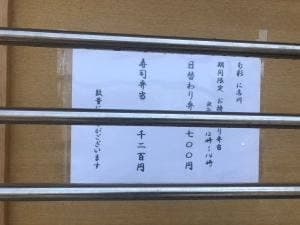 旬彩
期間限定 お持 り弁当
12時~14時
日替わり弁 七〇〇円
寿司弁当 千二百円
数量 がございます